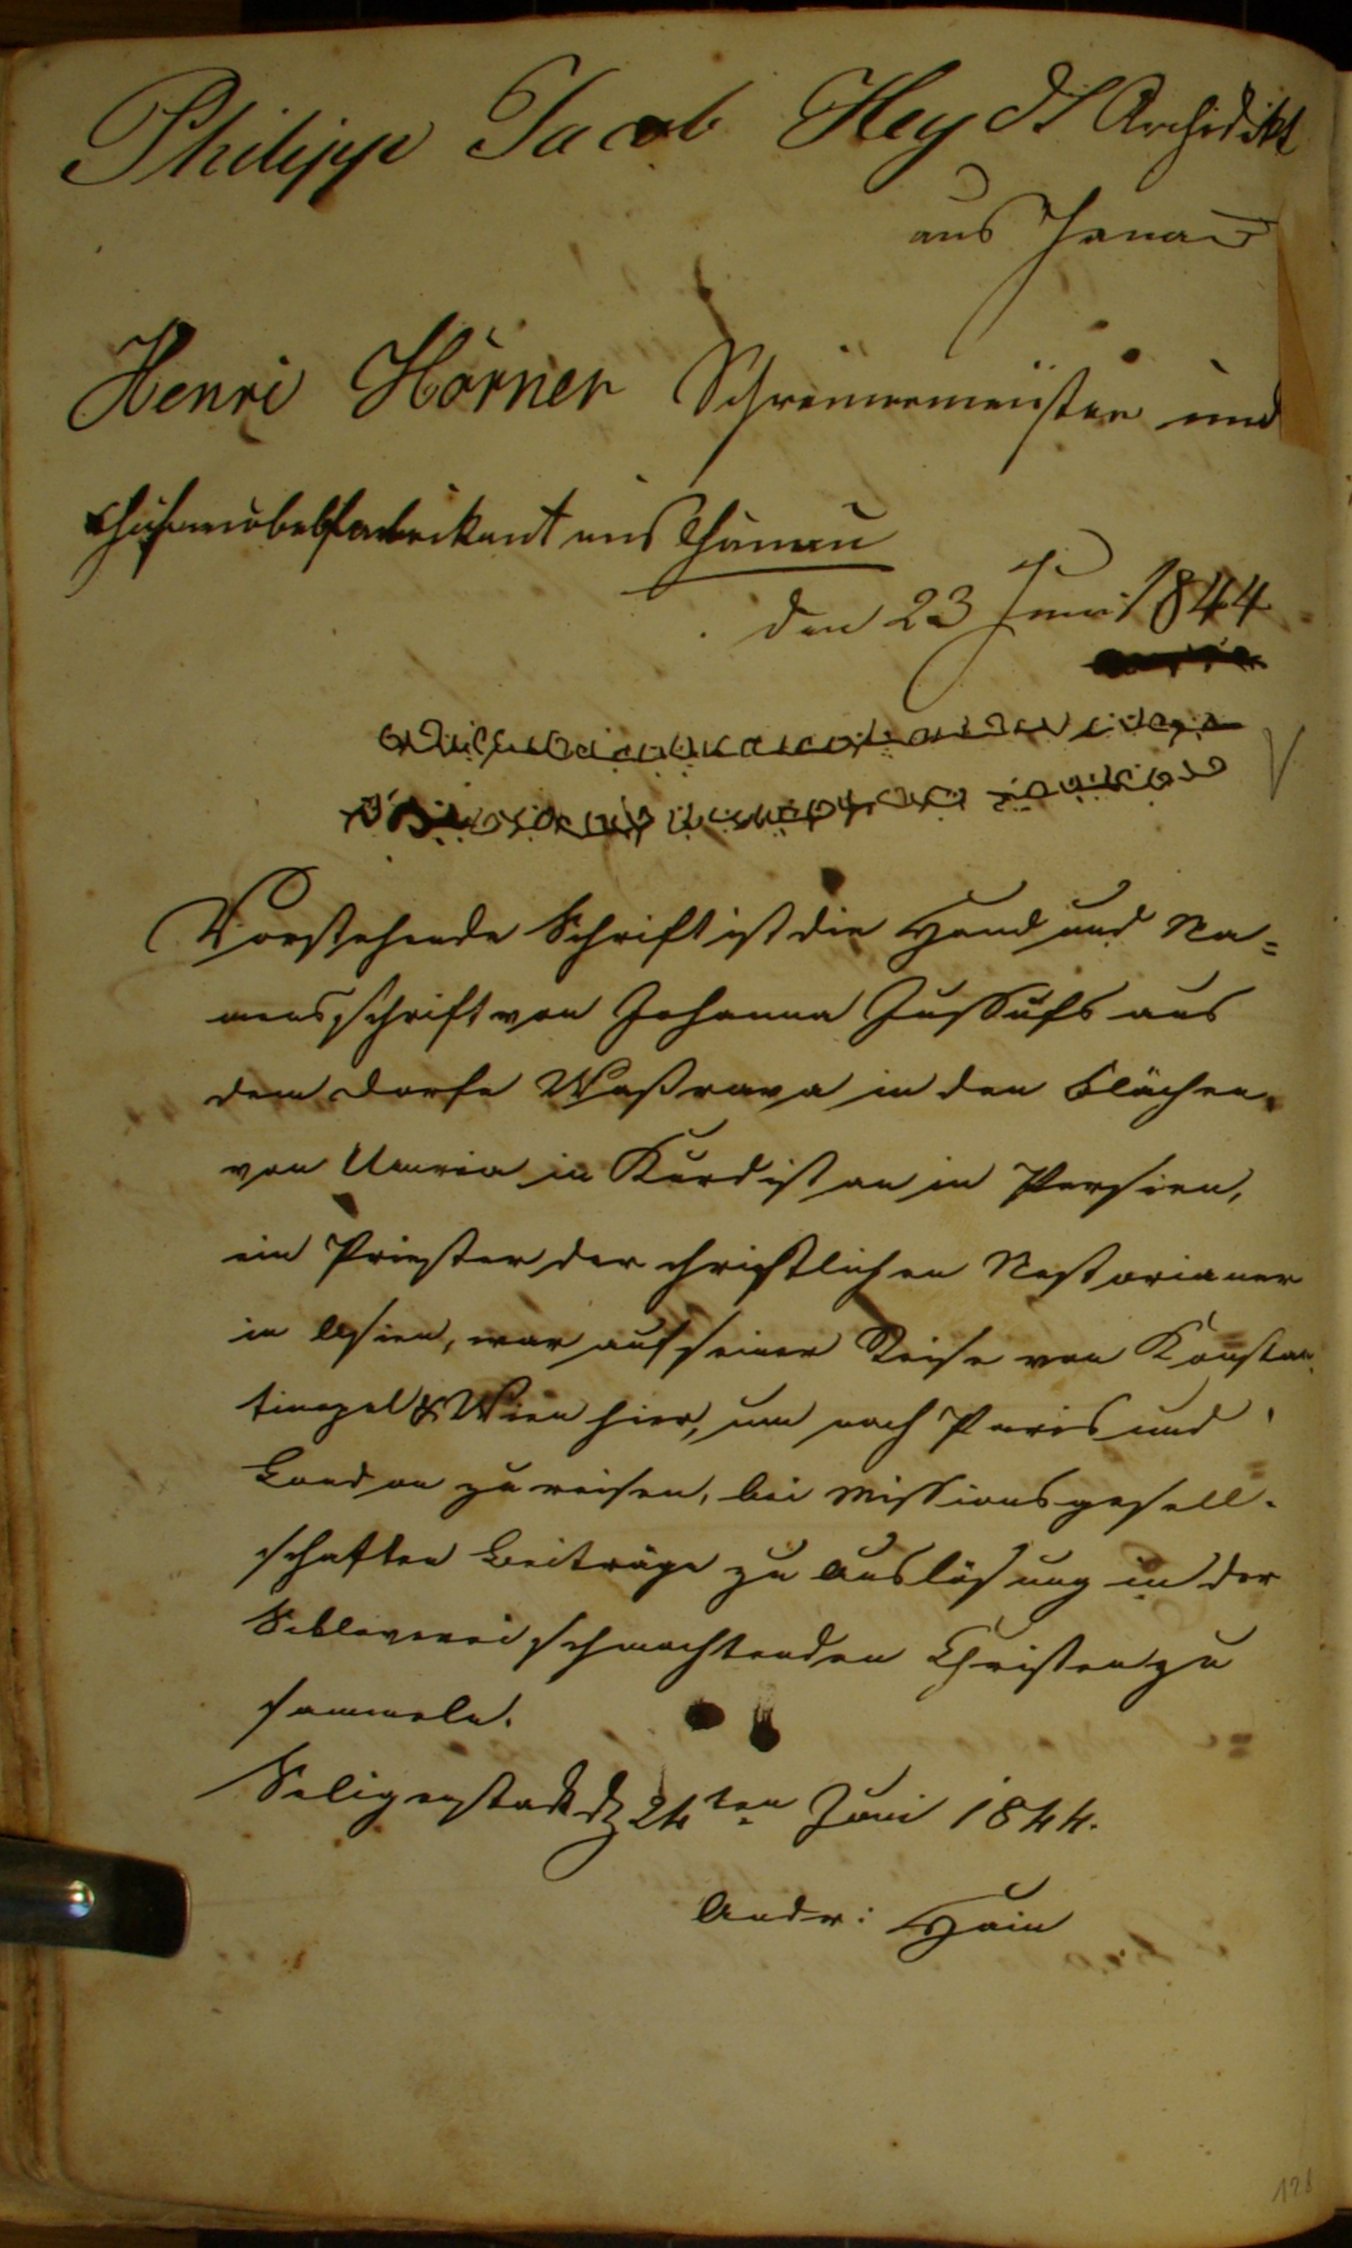 Philipp Jacob Heydt Archidikt
aus Hanau
Henri Hörner Schreinermeister und
aus Hanau
den 23 Juni 1844
Vorstehende Schrift ist die Hand und Na=
mensschrift von Johanna Jussufs aus
dem Dorfe Waßrava in den Flächen
von Umria in Kurdistan in Persien,
ein Priester der christlichen Nestorianer
in Asien, war auf seiner Reise von Konstan
tinopel & Wien hier, um nach Paris und
London zu reisen, bei Missionsgesell-
schaften Beiträge zu Auslösung in der
Schlaverei schmachtenden Christen zu
sammeln.
Seligenstadt d 24ten Juni 1844.
Andr: Hain
128